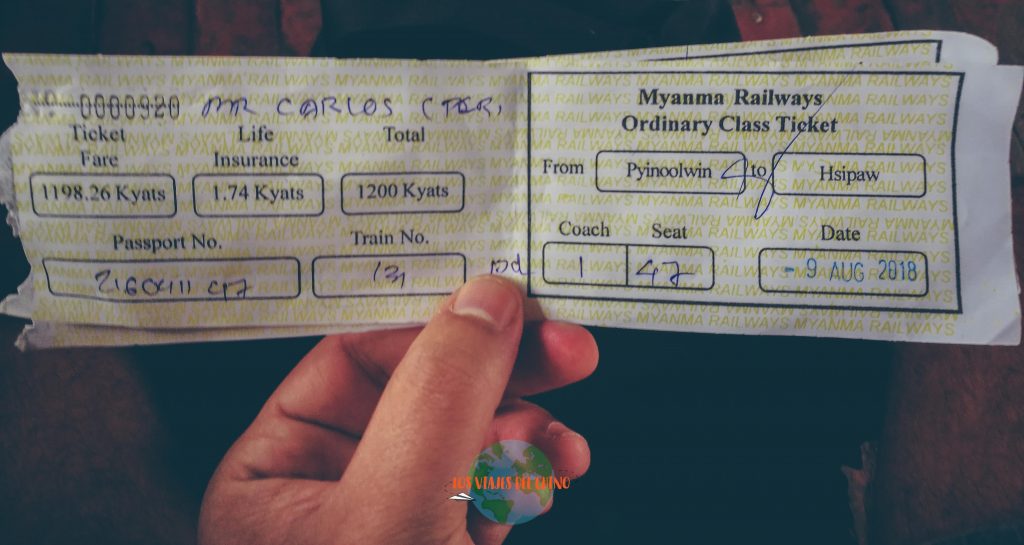 0000920 MR CARLOS
Ticket Fare
Life Insurance
Total
1198.26 Kyats
1.74 Kyats
1200 Kyats
Passport No.
Train No.
Myanma Railways
Ordinary Class Ticket
From Pyinoolwin to Hsipaw
Coach
Seat
Date
1
47
- 9 AUG 2018
LOS VIAJES DEL CHINO
MYANMA RAILWAYS MYANMA RAILWAYS